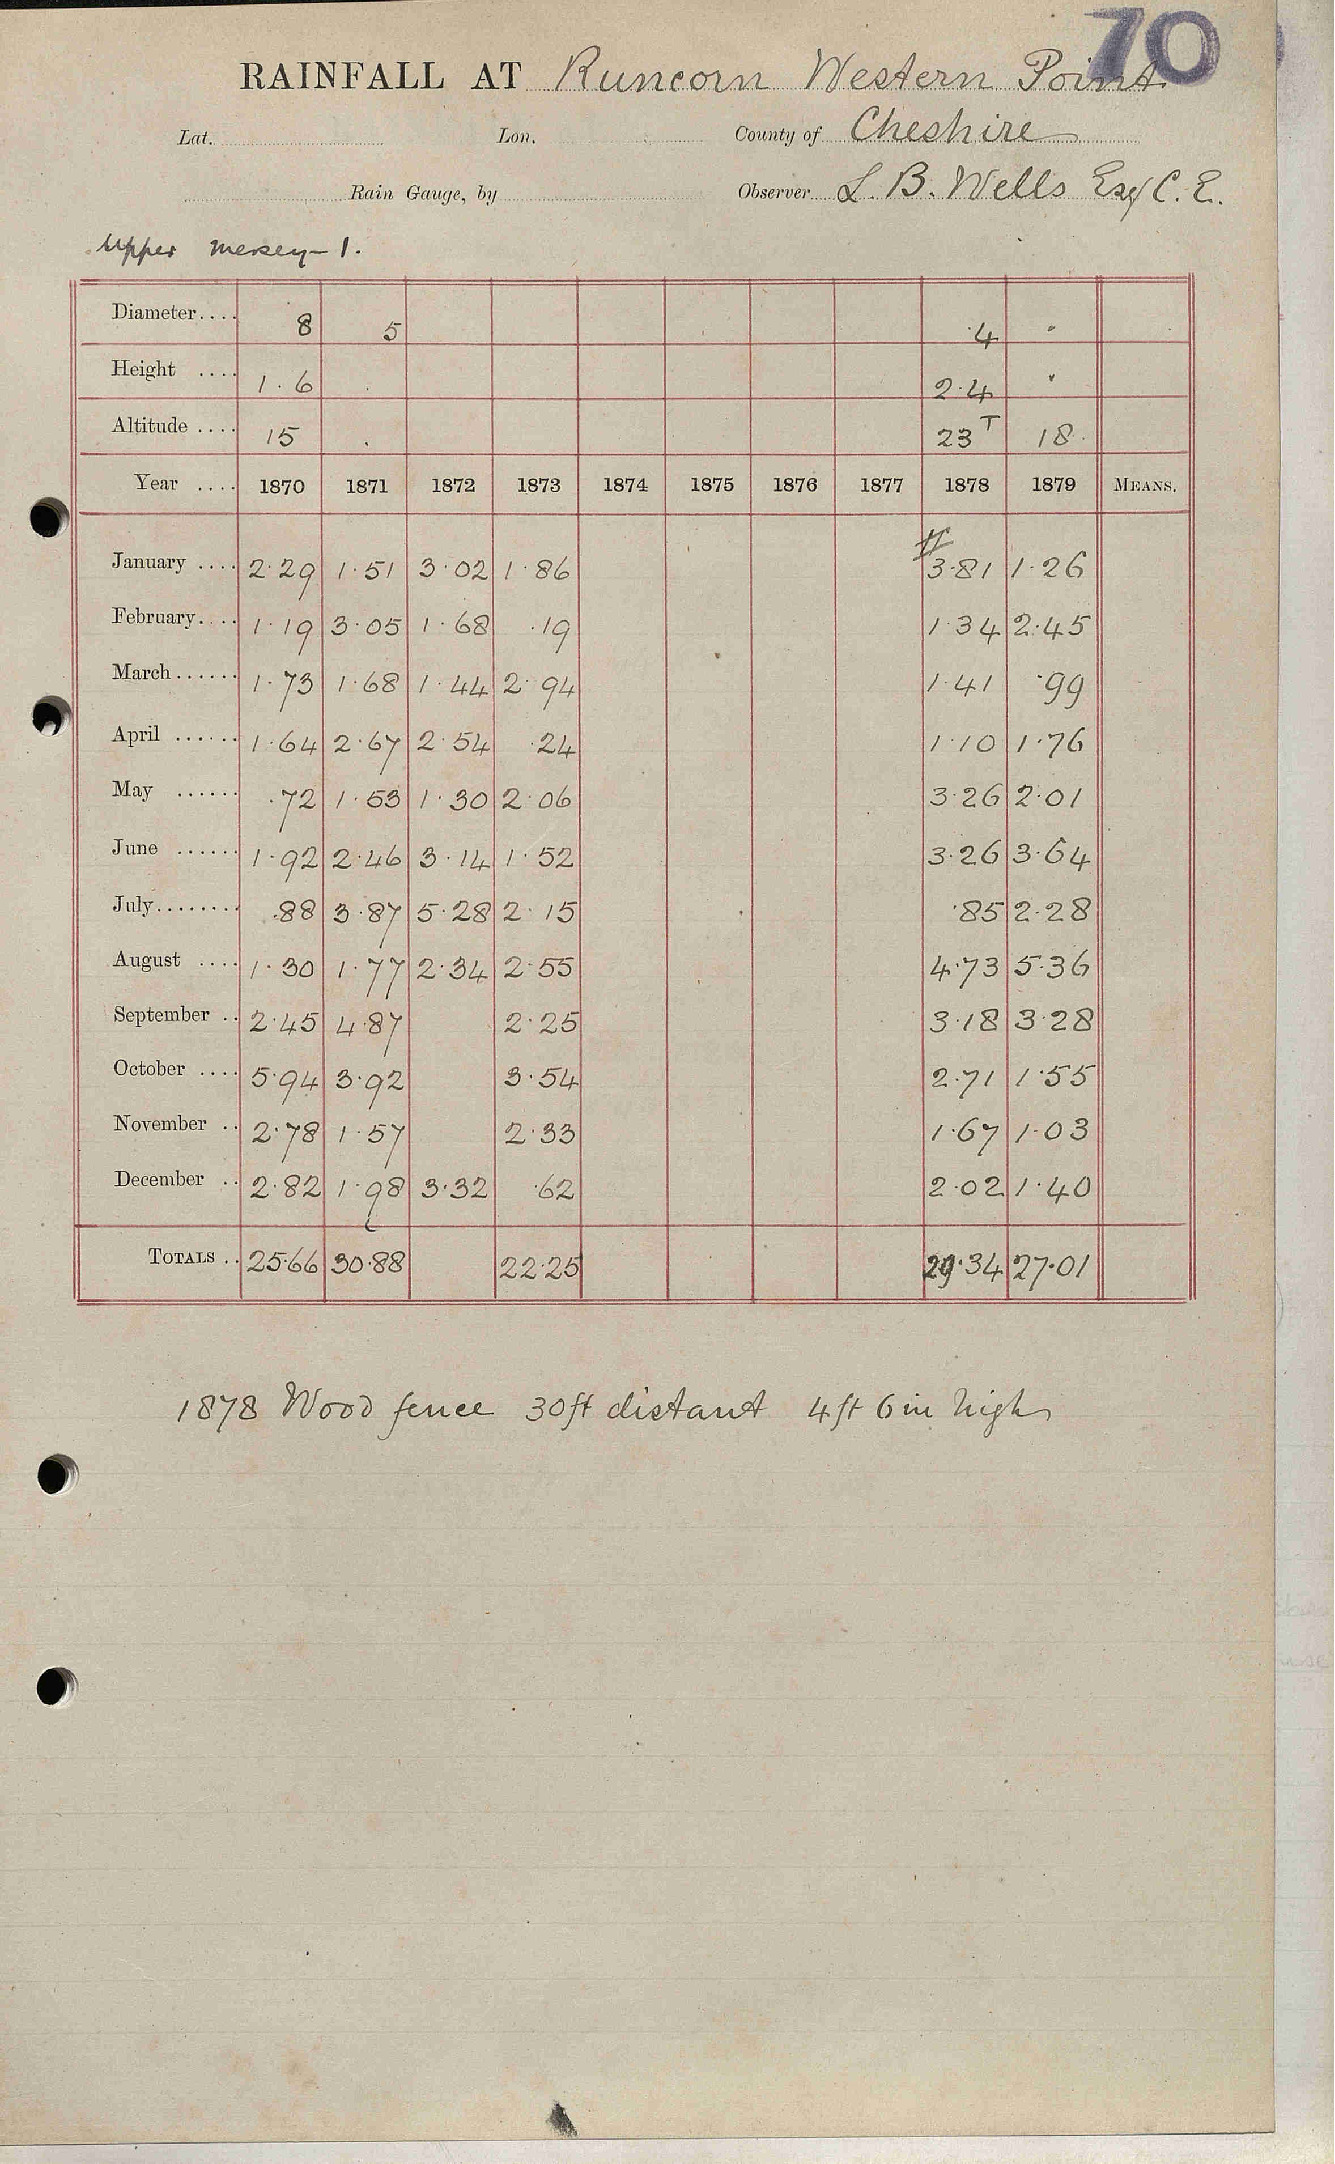 70
RAINFALL AT Runcorn Western Point
Lat. Lon. County of Cheshire
Rain Gauge, by Observer L. B. Wells Esq C. E.
Upper Mersey - 1.
Diameter.... 8 5 4 "
Height .... 1.6 . 2.4 "
Altitude .... 15 . 23 T 18.
Year .... 1870 1871 1872 1873 1874 1875 1876 1877 1878 1879 MEANS.
January .... 2.29 1.51 3.02 1.86 3.81 1.26
February.... 1.19 3.05 1.68 .19 1.34 2.45
March...... 1.73 1.68 1.44 2.94 1.41 .99
April ...... 1.64 2.67 2.54 .24 1.10 1.76
May ...... .72 1.53 1.30 2.06 3.26 2.01
June ...... 1.92 2.46 3.14 1.52 3.26 3.64
July........ .88 3.87 5.28 2.15 .85 2.28
August .... 1.30 1.77 2.34 2.55 4.73 5.36
September .. 2.45 4.87 2.25 3.18 3.28
October .... 5.94 3.92 3.54 2.71 1.55
November .. 2.78 1.57 2.33 1.67 1.03
December .. 2.82 1.98 3.32 .62 2.02 1.40
TOTALS .. 25.66 30.88 22.25 29.34 27.01
1878 Wood fence 30ft distant 4ft 6in high